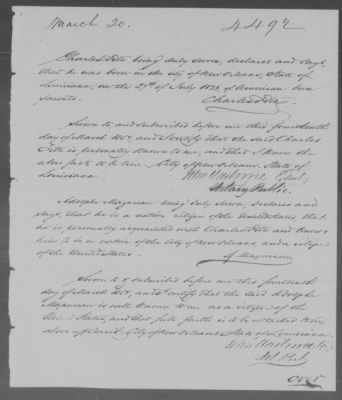 March 20.
4492
Charles Fite being duly sworn, declares and says,
that he was born in the city of New Orleans, State of
Louisiana, on the 29th of July 1828, of American born
parents.
Charles Fite
Sworn to, and subscribed before me this fourteenth
day of March 1854, and I certify that the said Charles
Fite is personally known to me, and that I know the
above facts to be true. City of New Orleans, State of
Louisiana.
Notary Public.
Adolphe Mazureau being duly sworn, declares and
says, that he is a native citizen of the United States, that
he is personally acquainted with Charles Fite and knows
him to be a native of the City of New Orleans, and a citizen
of the United States.
A Mazureau
Sworn to & subscribed before me this fourteenth
day of March 1854, and I certify that the said Adolphe
Mazureau is well known to me as a citizen of the
United States, and that full faith is to be attached to his
above affidavit. City of New Orleans State of Louisiana.
Not. Pub.
over